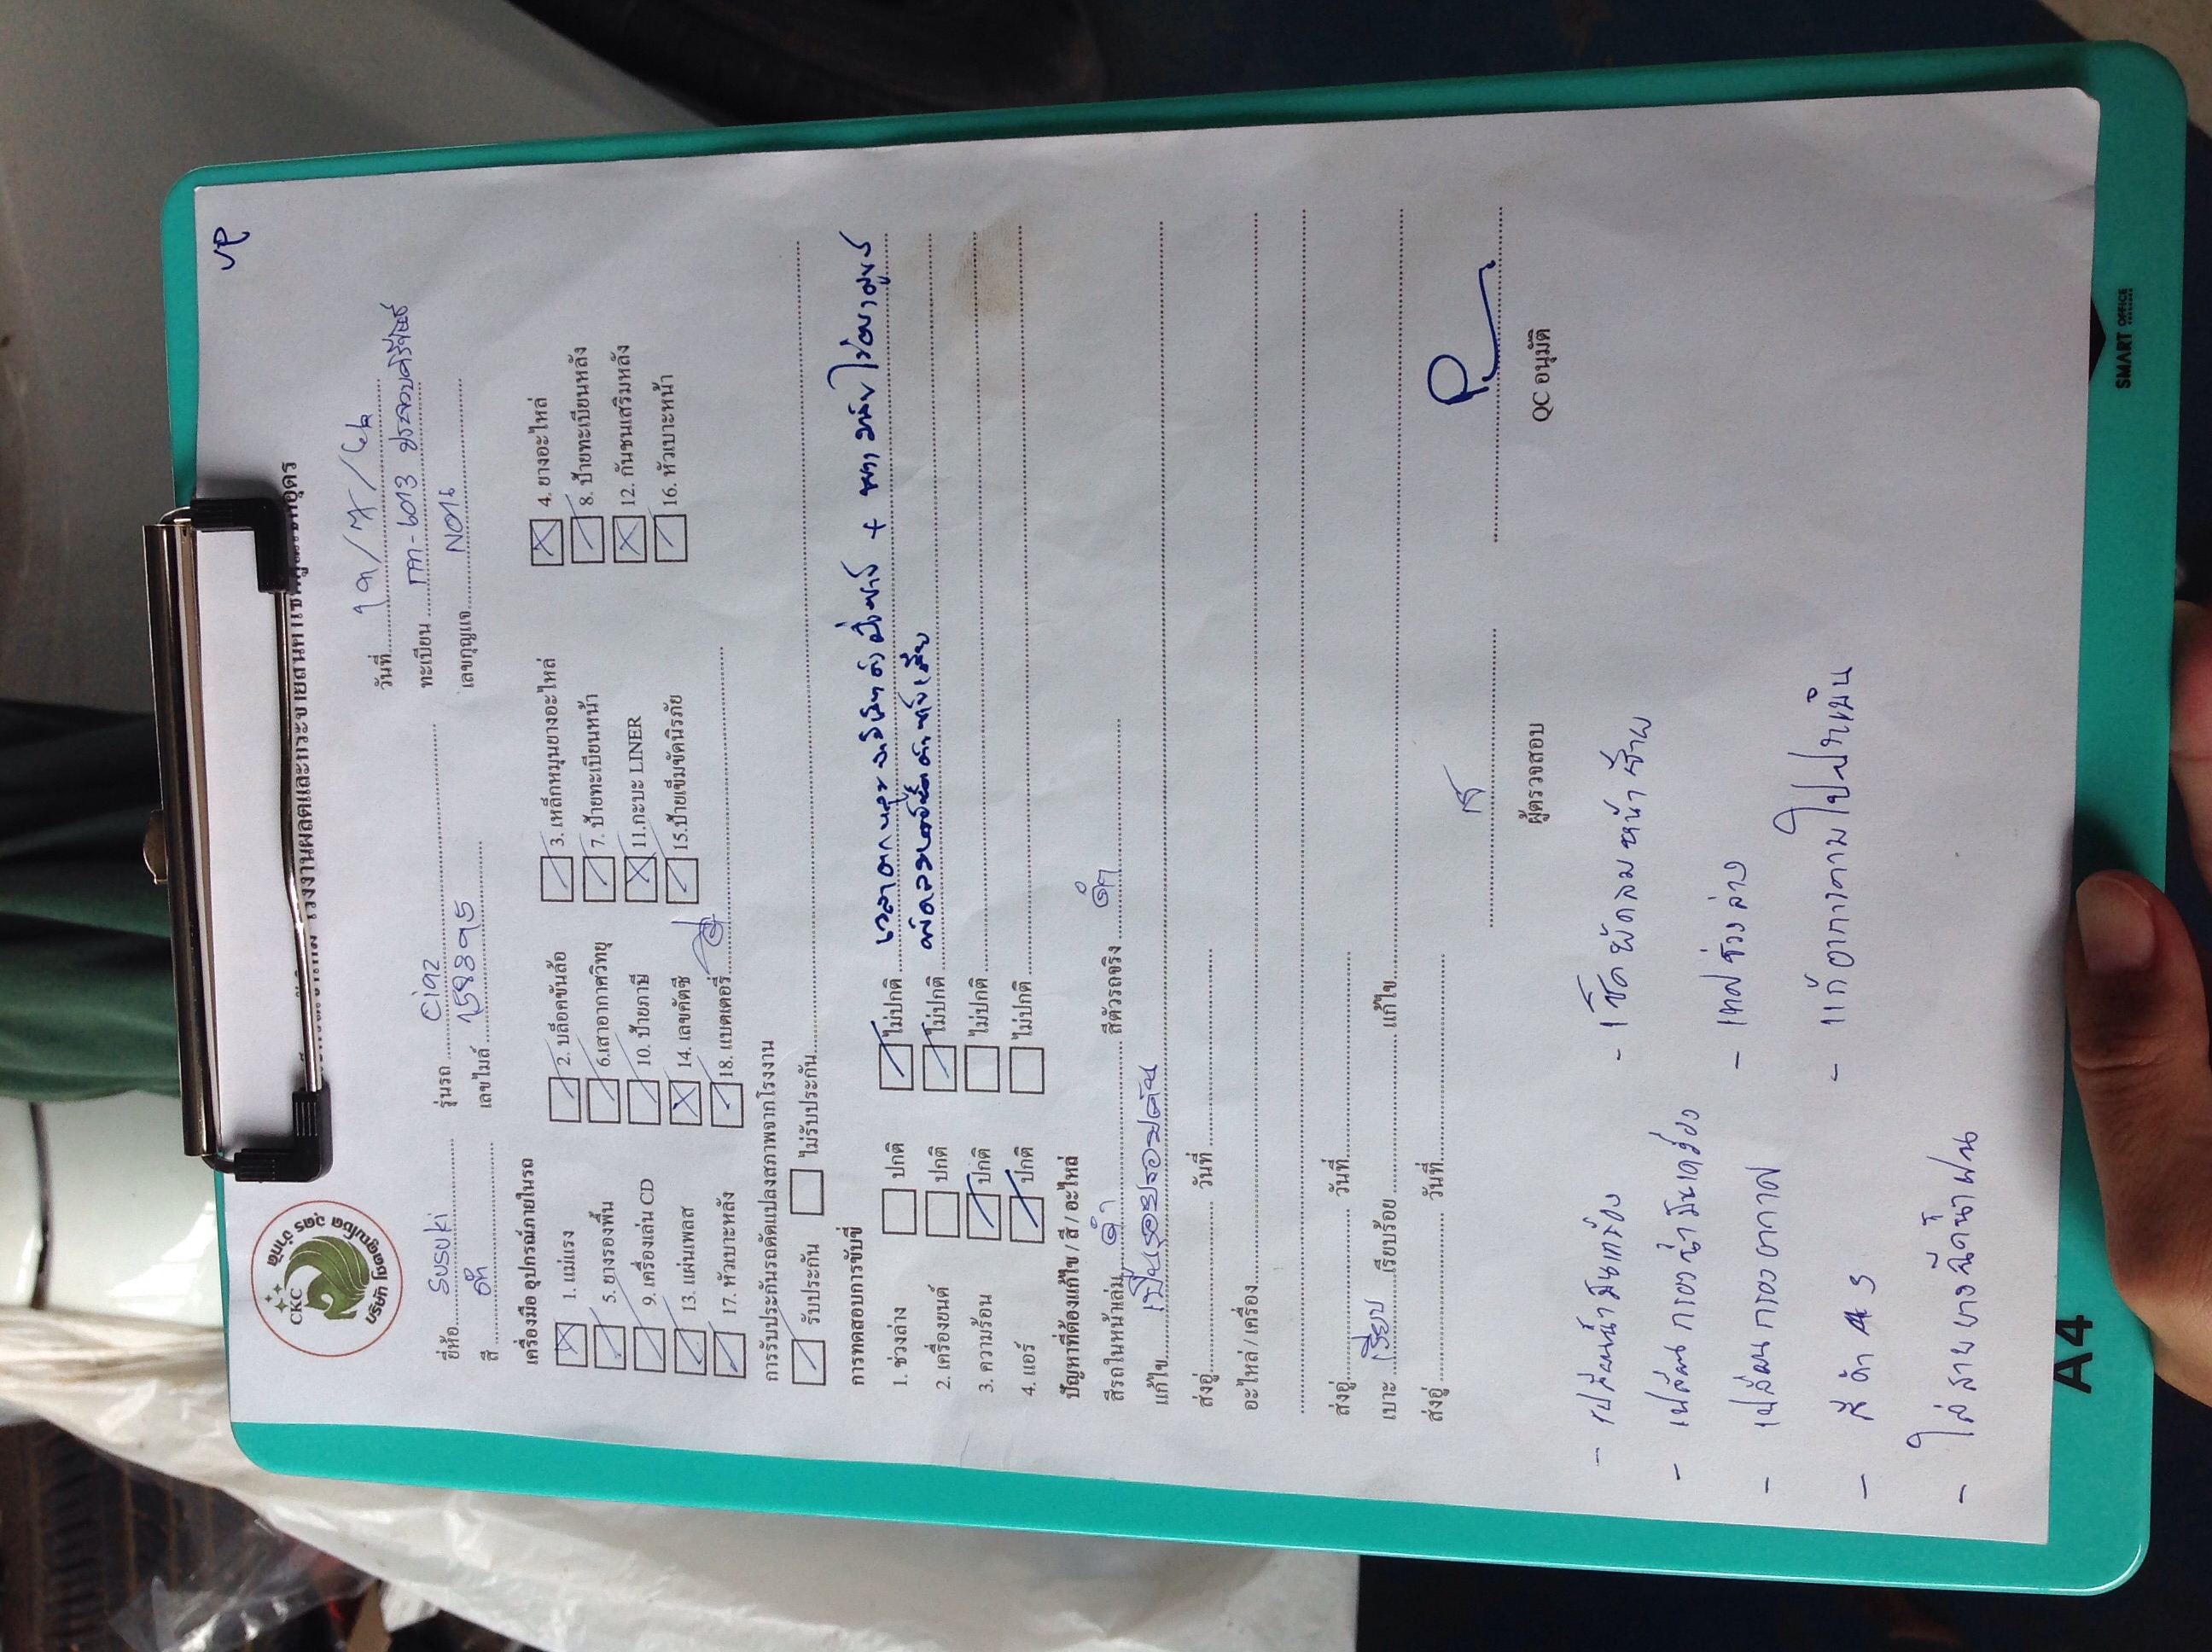 VP
CKC
บริษัท ชูเกียรติยนต์ อุดร จำกัด
วันที่ ๑๑/๗/๖๒
ยี่ห้อ SUSUKI รุ่นรถ Ciaz ทะเบียน กก-6013 ประจวบคีรีขันธ์
สี ดำ เลขไมล์ 158895 เลขกุญแจ N016
เครื่องมือ อุปกรณ์ภายในรถ
1. แม่แรง 2. บล็อคขันล้อ 3. เหล็กหมุนยางอะไหล่ 4. ยางอะไหล่
5. ยางรองพื้น 6.เสาอากาศวิทยุ 7. ป้ายทะเบียนหน้า 8. ป้ายทะเบียนหลัง
9. เครื่องเล่น CD 10. ป้ายภาษี 11.กะบะ LINER 12. กันชนเสริมหลัง
13. แผ่นเพลส 14. เลขคัตซี 15.ป้ายเข็มขัดนิรภัย 16. หัวเบาะหน้า
17. หัวเบาะหลัง 18. แบตเตอรี่
การรับประกันรถดัดแปลงสภาพจากโรงงาน
รับประกัน ไม่รับประกัน
การทดสอบการขับขี่
1. ช่วงล่าง ปกติ ไม่ปกติ
2. เครื่องยนต์ ปกติ ไม่ปกติ
3. ความร้อน ปกติ ไม่ปกติ
4. แอร์ ปกติ ไม่ปกติ
ปัญหาที่ต้องแก้ไข / สี / อะไหล่
สีรถในหน้าเล่ม ดำ สีตัวรถจริง ดำ
แก้ไข เป็นรอยรอบคัน
ส่งอู่ วันที่
อะไหล่ / เครื่อง
ส่งอู่ วันที่
เบาะ เรียบ เรียบร้อย แก้ไข
ส่งอู่ วันที่
ผู้ตรวจสอบ QC อนุมัติ
- เปลี่ยนน้ำมันเครื่อง - เช็คพัดลมหน้าซ้าย
- เปลี่ยนกรองน้ำมันเครื่อง - เทสช่วงล่าง
- เปลี่ยนกรองอากาศ - แก้อาการตามใบประเมิน
- ใส่สายยางฉีดน้ำฝน
SMART OFFICE
A4